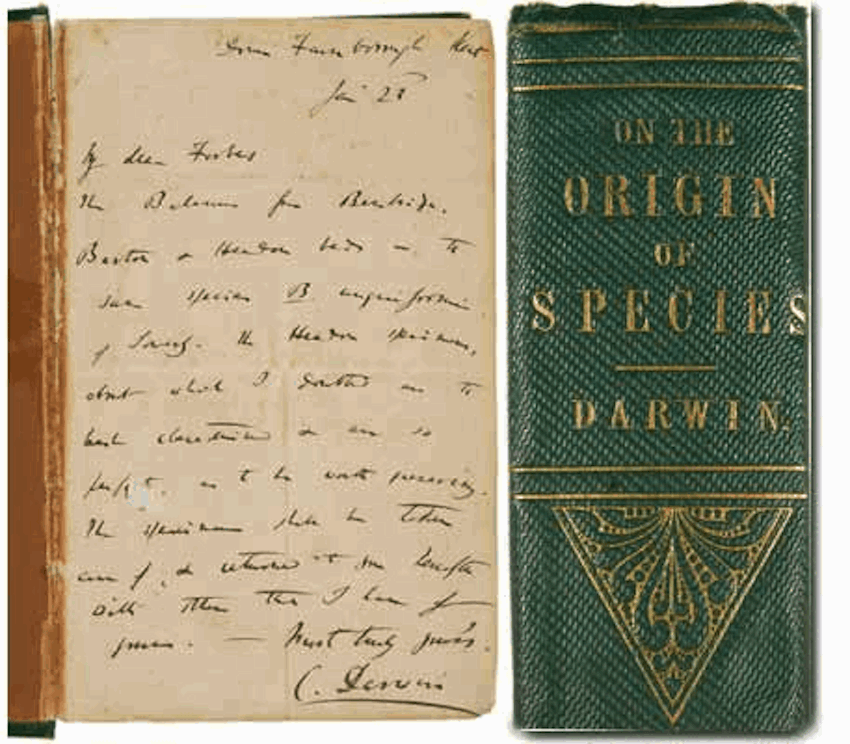 Down Farnborough Kent
Jan 28
My dear Forbes
The Balanus from Bembridge,
Barton & Headon beds is the
same species B. unguiformis
of Sowerby. The Headon specimens,
about which I doubted are the
best characterised & are so
perfect, as to be worth preserving.
The specimens shall be taken
care of, & returned to you together
with others that I have from
yours. — Most truly yours.
C. Darwin
ON THE
ORIGIN
OF
SPECIES
DARWIN.